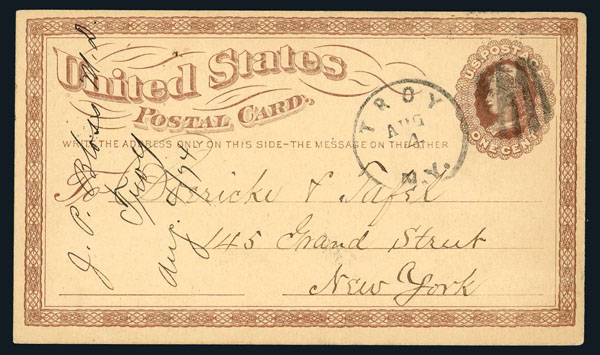 United States
POSTAL CARD.
WRITE THE ADDRESS ONLY ON THIS SIDE-THE MESSAGE ON THE OTHER
U.S. POSTAGE
ONE CENT
TROY
AUG
4
N.Y.
To Derricke & Safel
145 Grand Street
New York
J. P. Bloss M.D.
Troy
Aug. 4/74